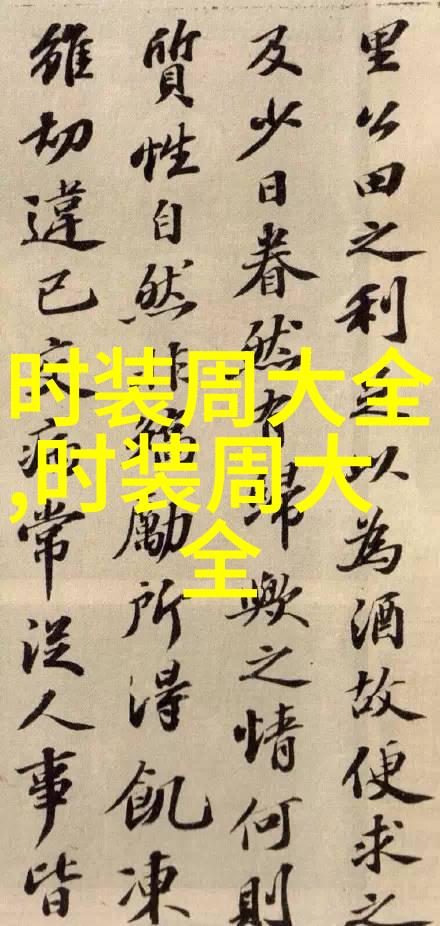 里公田之利足以為酒故便求之
及少日眷然有歸歟之情何則
質性自然非矯勵所得飢凍
雖切違已交病常從人事皆
时装周大全
,时装周大
全